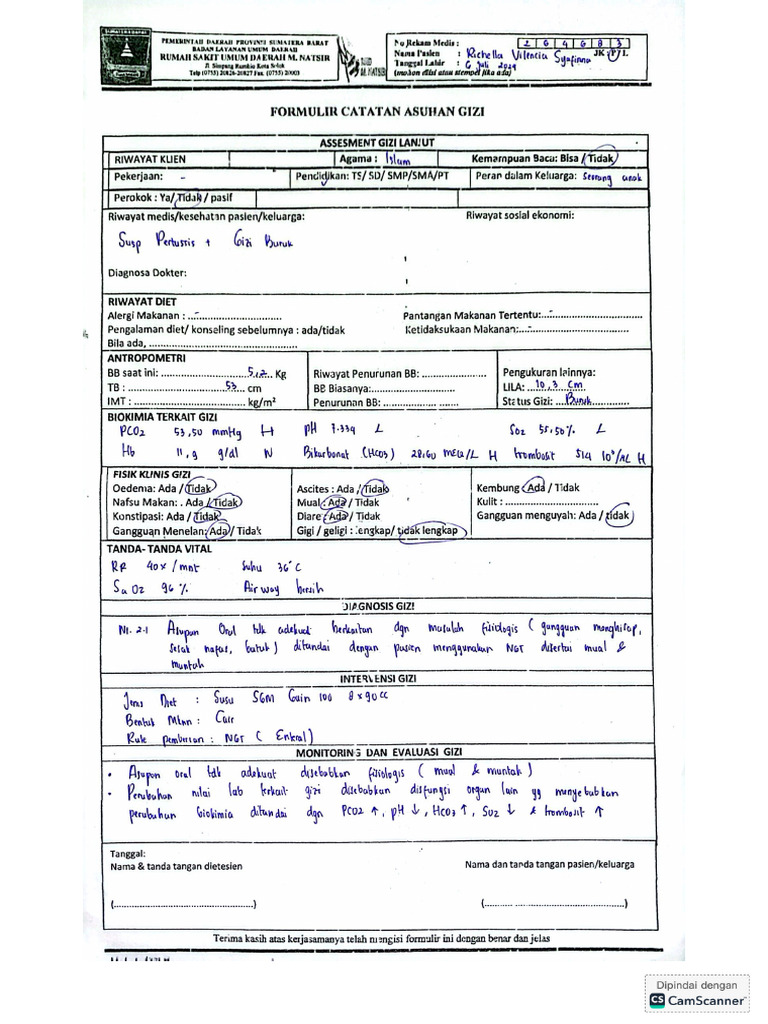 PEMERINTAH DAERAH PROVINSI SUMATERA BARAT
BADAN LAYANAN UMUM DAERAH
RUMAH SAKIT UMUM DAERAH M. NATSIR
Jl Simpang Rumbio Kota Solok
Telp (0755) 20826-20827 Fax. (0755) 20003
RSUD
M. NATSIR
No Rekam Medis : 264683
Nama Pasien : Richella Vilencia Syafinna JK : P/L
Tanggal Lahir : 6 Juli 2024
(mohon diisi atau stempel jika ada)
FORMULIR CATATAN ASUHAN GIZI
ASSESMENT GIZI LANJUT
RIWAYAT KLIEN Agama : Islam Kemampuan Baca: Bisa / Tidak
Pekerjaan: - Pendidikan: TS/ SD/ SMP/SMA/PT Peran dalam Keluarga: Seorang anak
Perokok : Ya/ Tidak / pasif
Riwayat medis/kesehatan pasien/keluarga: Riwayat sosial ekonomi:
Susp Pertussis + Gizi Buruk
Diagnosa Dokter:
RIWAYAT DIET
Alergi Makanan : - Pantangan Makanan Tertentu: -
Pengalaman diet/ konseling sebelumnya : ada/tidak Ketidaksukaan Makanan: -
Bila ada, ............
ANTROPOMETRI
BB saat ini: 5,2 Kg Riwayat Penurunan BB: ............ Pengukuran lainnya:
TB : 53 cm BB Biasanya: ............ LILA: 10,3 cm
IMT : ............ kg/m² Penurunan BB : ............ Status Gizi : Buruk
BIOKIMIA TERKAIT GIZI
PCO2 53,50 mmHg H pH 7.334 L SO2 55,50% L
Hb 11,9 g/dl N Bikarbonat (HCO3) 28,60 mEq/L H trombosit 514 10³/µL H
FISIK KLINIS GIZI
Oedema: Ada / Tidak Ascites : Ada / Tidak Kembung : Ada / Tidak
Nafsu Makan: . Ada / Tidak Mual : Ada / Tidak Kulit : ............
Konstipasi: Ada / Tidak Diare : Ada / Tidak Gangguan menguyah: Ada / tidak
Gangguan Menelan: Ada / Tidak Gigi / geligi : lengkap/ tidak lengkap
TANDA- TANDA VITAL
RR 40x /mnt Suhu 36°C
SaO2 96 % Airway bersih
DIAGNOSIS GIZI
NI. 2.1 Asupan Oral tdk adekuat berkaitan dgn masalah fisiologis ( gangguan menghisap,
sesak nafas, batuk ) ditandai dengan pasien menggunakan NGT disertai mual &
muntah
INTERVENSI GIZI
Jenis Diet : Susu SGM Gain 100 8 x 90 cc
Bentuk Mknn : Cair
Rute pemberian : NGT ( Enteral )
MONITORING DAN EVALUASI GIZI
• Asupan oral tdk adekuat disebabkan fisiologis ( mual & muntah )
• Perubahan nilai lab terkait gizi disebabkan disfungsi organ lain yg menyebabkan
perubahan biokimia ditandai dgn PCO2 ↑, pH ↓, HCO3 ↑, SO2 ↓ & trombosit ↑
Tanggal:
Nama & tanda tangan dietesien Nama dan tanda tangan pasien/keluarga
(............) (............)
Terima kasih atas kerjasamanya telah mengisi formulir ini dengan benar dan jelas
Dipindai dengan
CS CamScanner